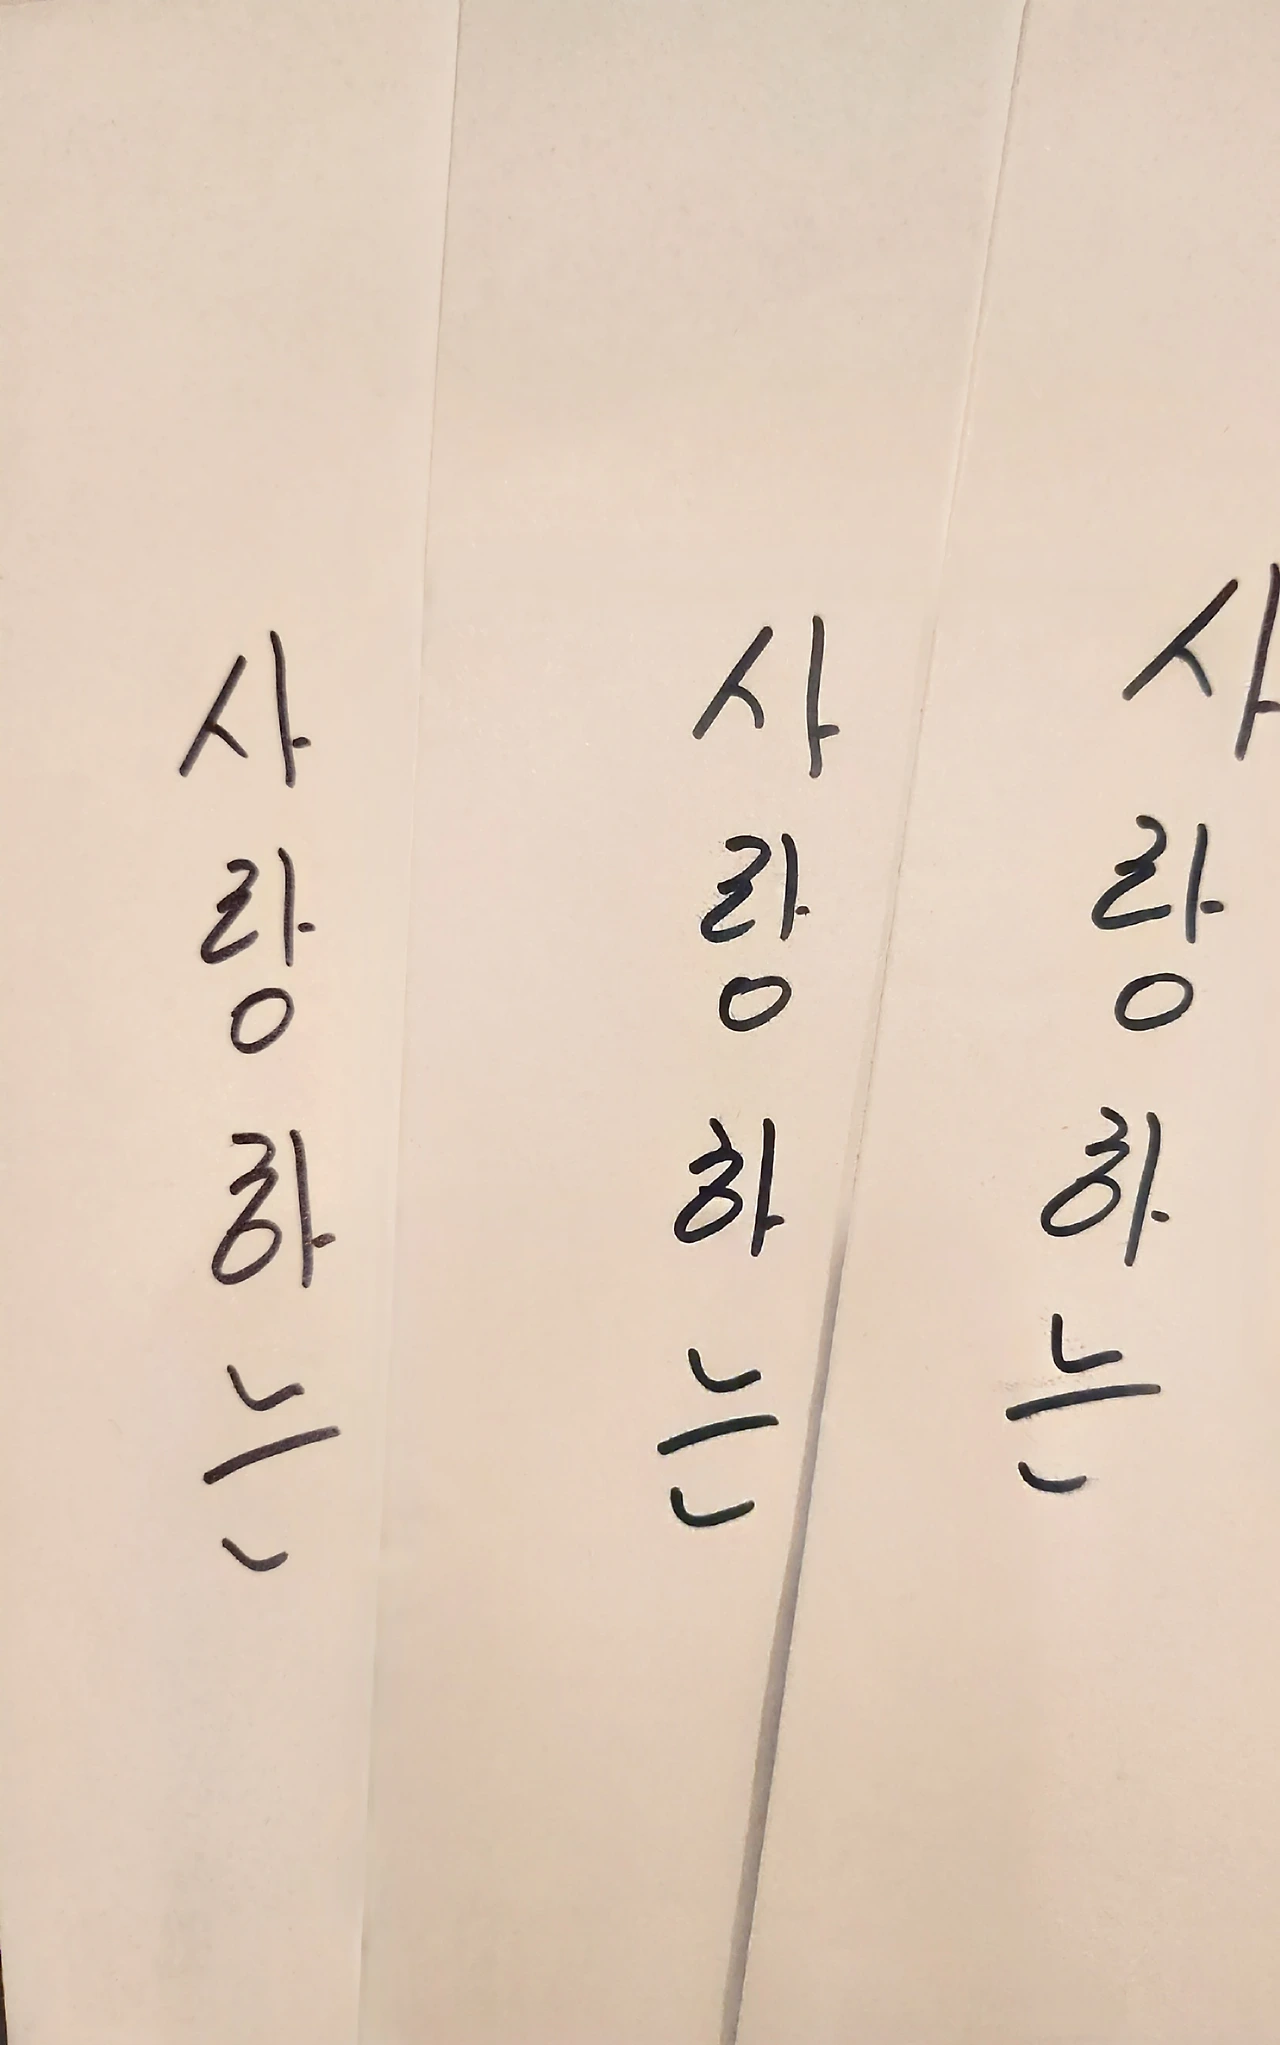 사랑하는
사랑하는
사랑하는